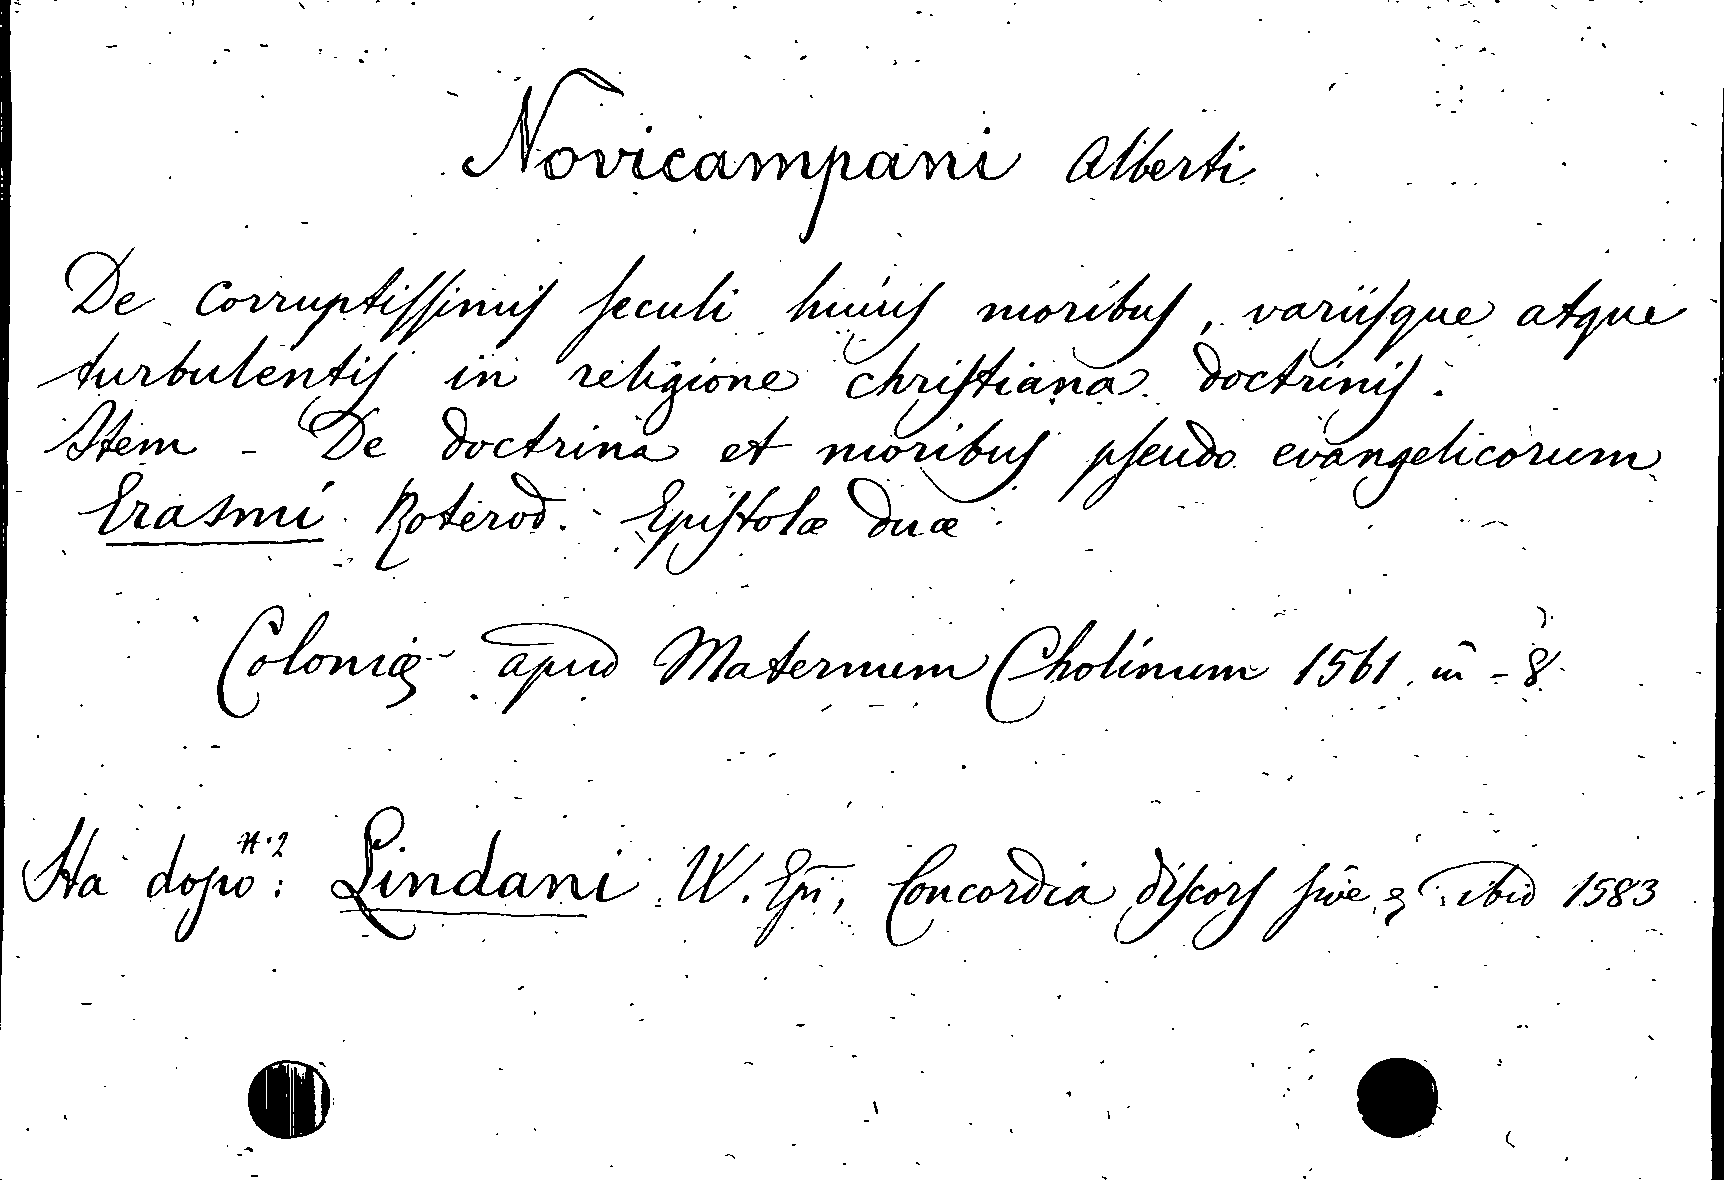 Novicampani Alberti
De corruptissimis seculi huius moribus, variisque atque
turbulentis in religione christiana doctrinis.
Item - De doctrina et moribus pseudo evangelicorum
Erasmi Roterod. Epistolæ duæ
Coloniæ apud Maternum Cholinum 1561 in - 8
Sta dopo n. 2: Lindani W. Epi, Concordia discors sive & ibid 1583